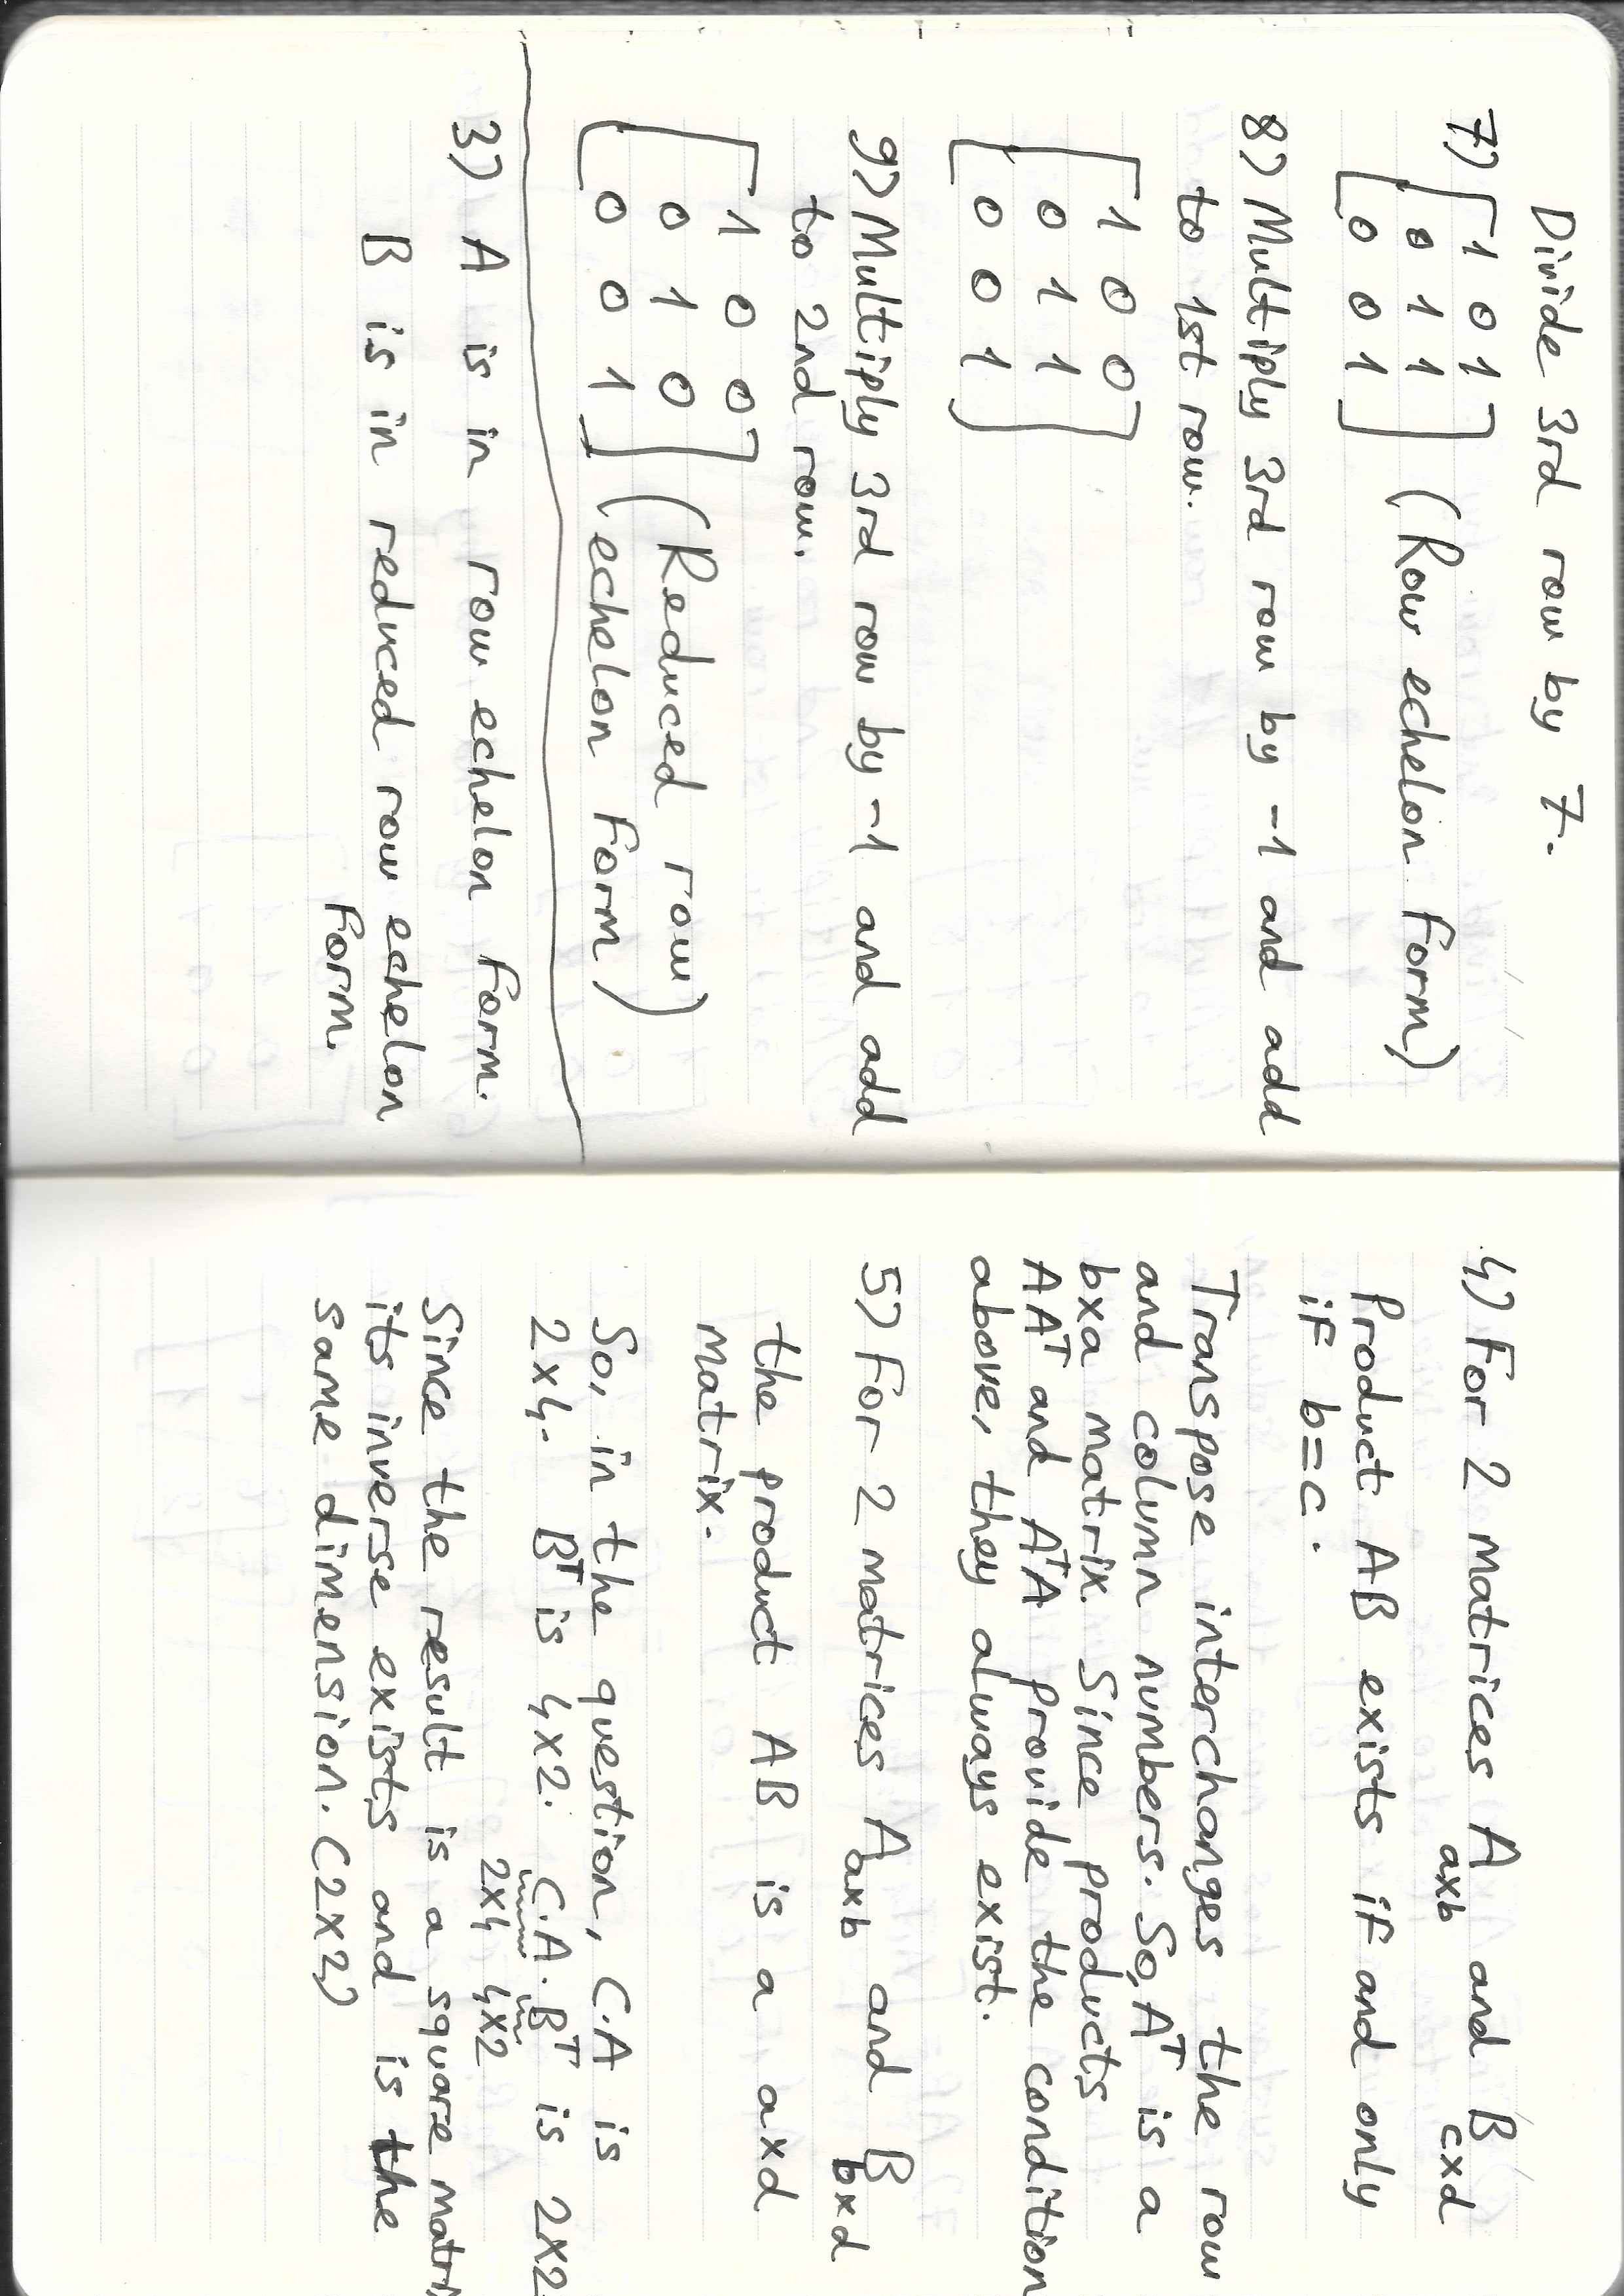 Divide 3rd row by 7.
7) [1 0 1
0 1 1 (Row echelon form)
0 0 1]
8) Multiply 3rd row by -1 and add
to 1st row.
[1 0 0
0 1 1
0 0 1]
9) Multiply 3rd row by -1 and add
to 2nd row.
[1 0 0
0 1 0 (Reduced row
0 0 1] echelon form)
3) A is in row echelon form.
B is in reduced row echelon
form.
4) For 2 matrices A axb and B cxd
Product AB exists if and only
if b=c.
Transpose interchanges the row
and column numbers. So, Aᵀ is a
bxa matrix. Since products
AAᵀ and AᵀA provide the condition
above, they always exist.
5) For 2 matrices A axb and B bxd
the product AB is a axd
matrix.
So, in the question, C.A is
2x4. Bᵀ is 4x2. C.A.Bᵀ is 2x2
2x4 4x2
Since the result is a square matri
its inverse exists and is the
same dimension. (2x2)